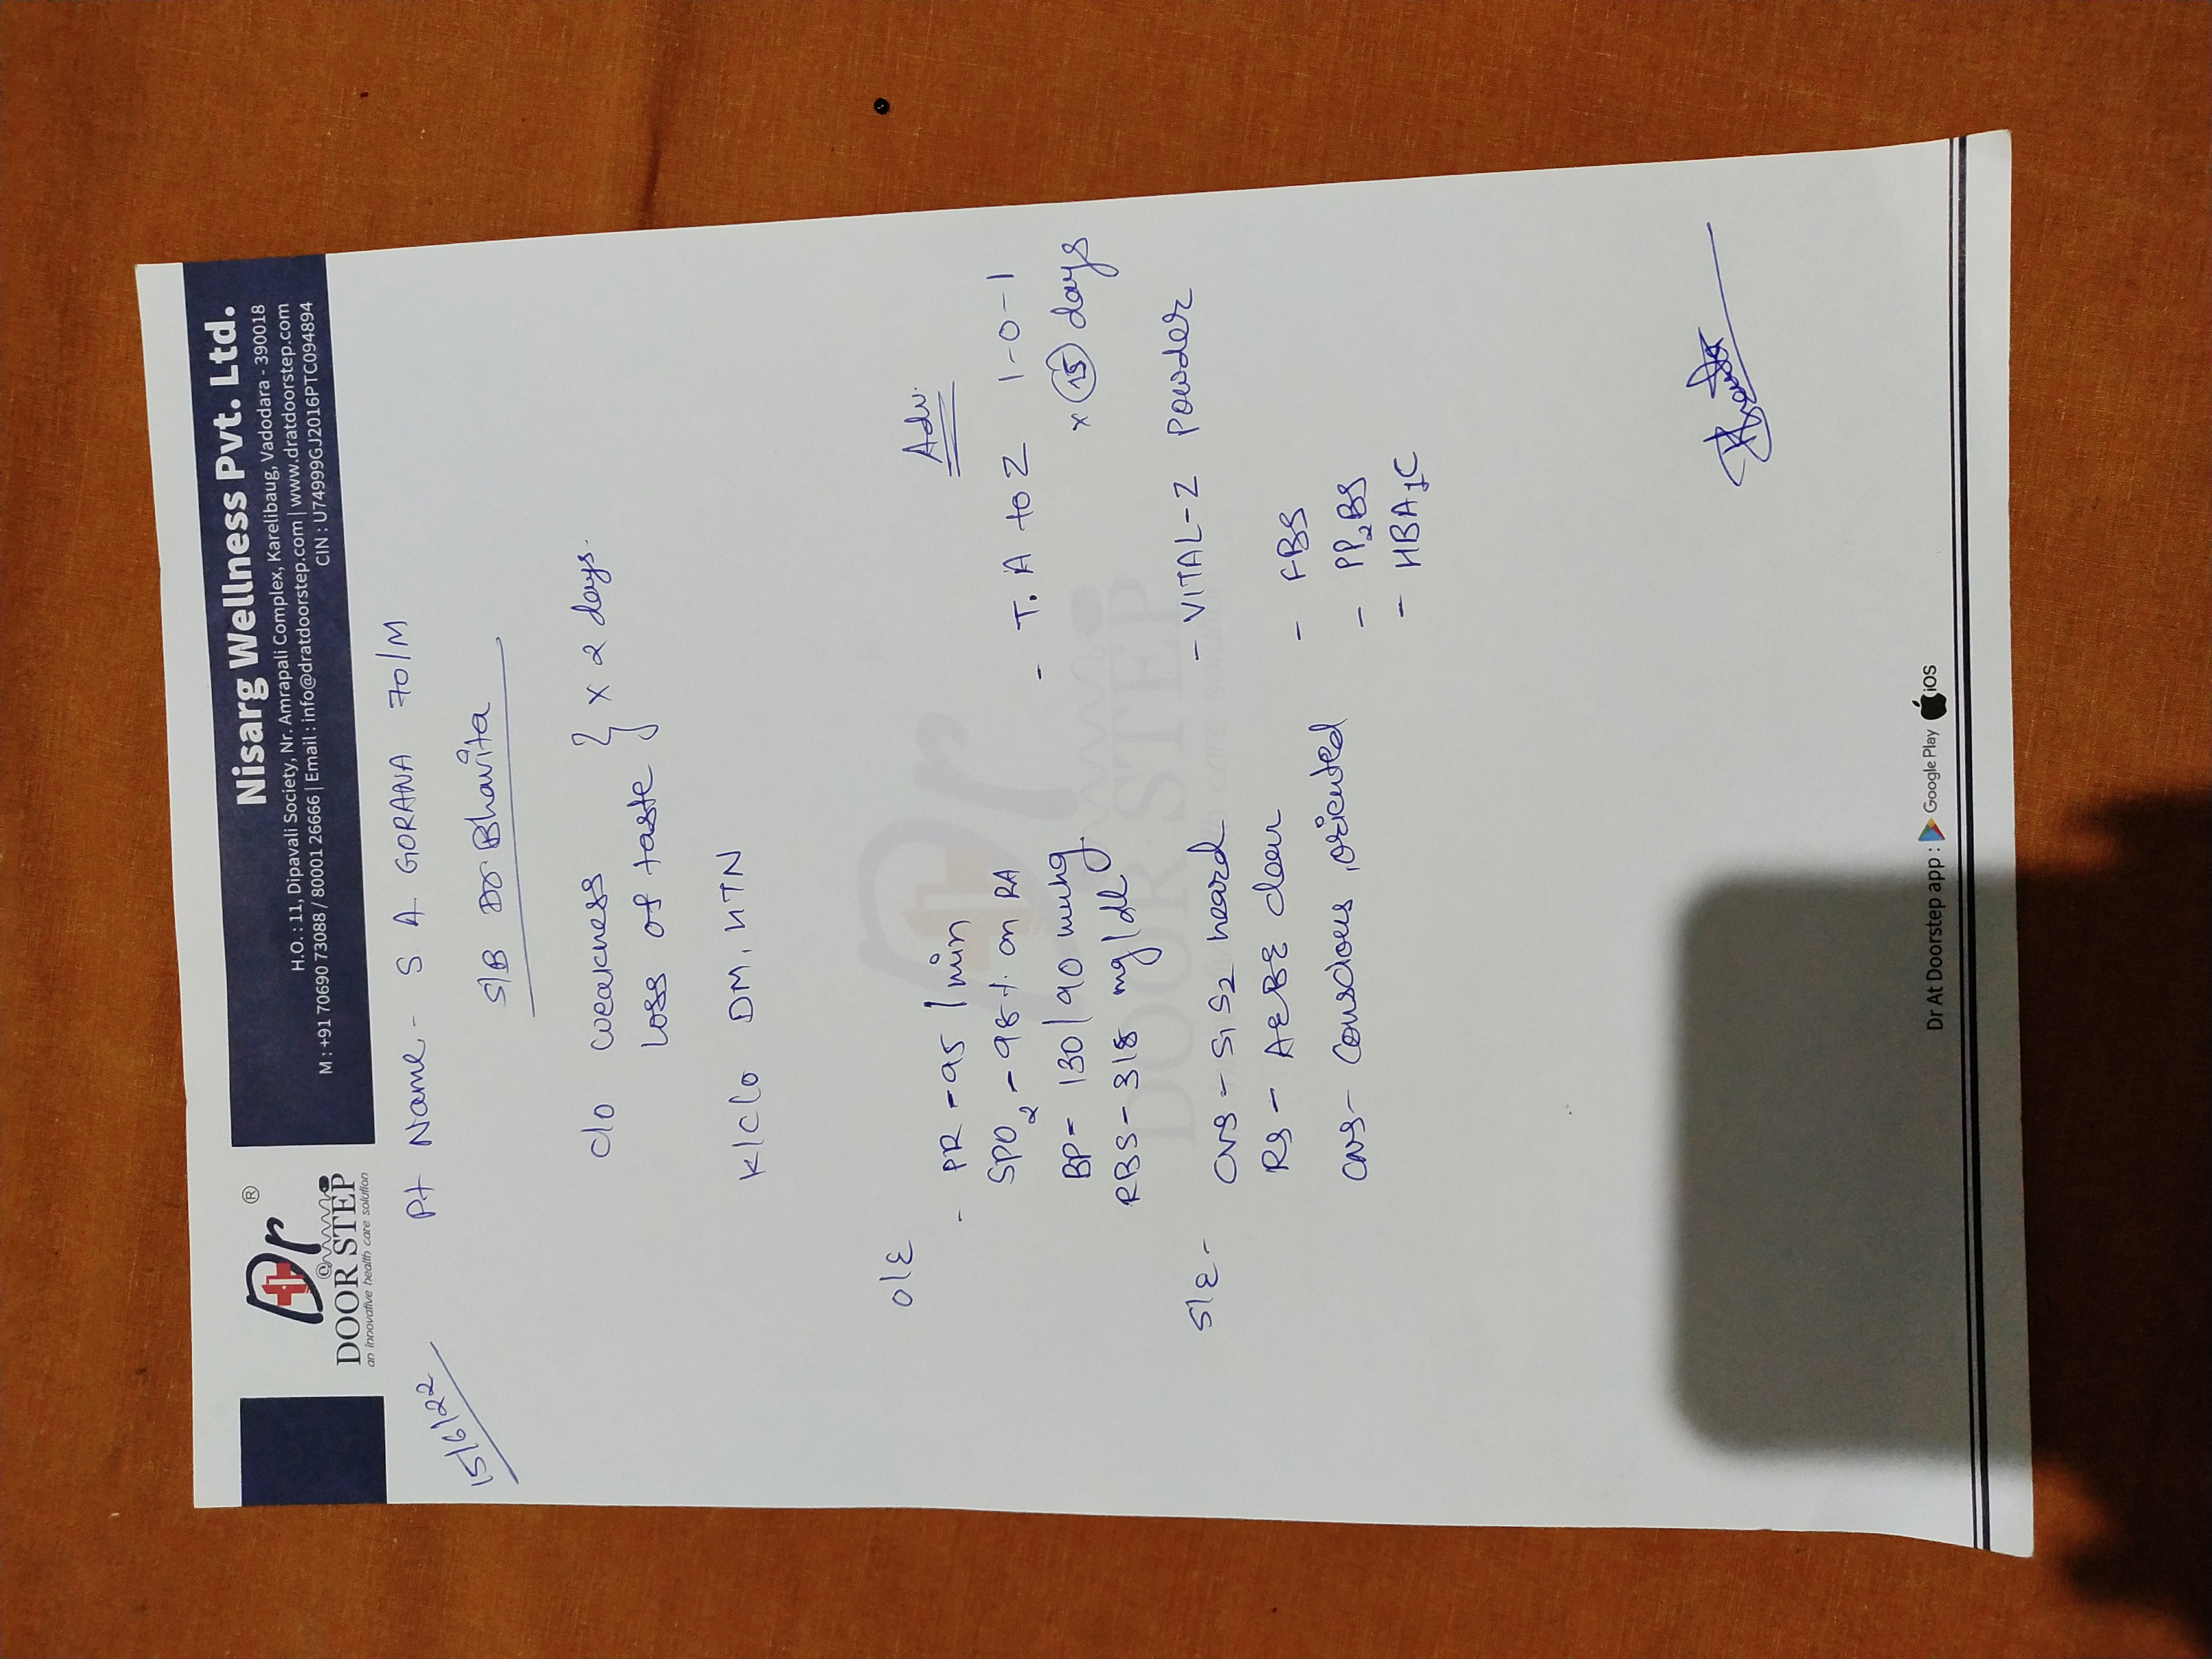 Dr ®
@
DOOR STEP
an innovative health care solution
Nisarg Wellness Pvt. Ltd.
H.O. : 11, Dipavali Society, Nr. Amrapali Complex, Karelibaug, Vadodara - 390018
M : +91 70690 73088 / 80001 26666 | Email : info@dratdoorstep.com | www.dratdoorstep.com
CIN : U74999GJ2016PTC094894
15/6/22
Pt Name - S A GORANA 70/M
S/B Dr Bhavita
c/o weakness
loss of taste } x 2 days.
K/C/o DM, HTN
O/E
- PR - 95 / min
SPO2 - 98 % on RA
BP - 130/90 mmhg
RBS - 318 mg/dl
S/E -
CVS - S1 S2 heard
RS - AEBE clear
CNS - Conscious, oriented
Adv.
- T. A to Z 1-0-1
x 15 days
- VITAL-Z Powder
- FBS
- PP2BS
- HBA1C
Bhavita
Dr At Doorstep app : Google Play iOS